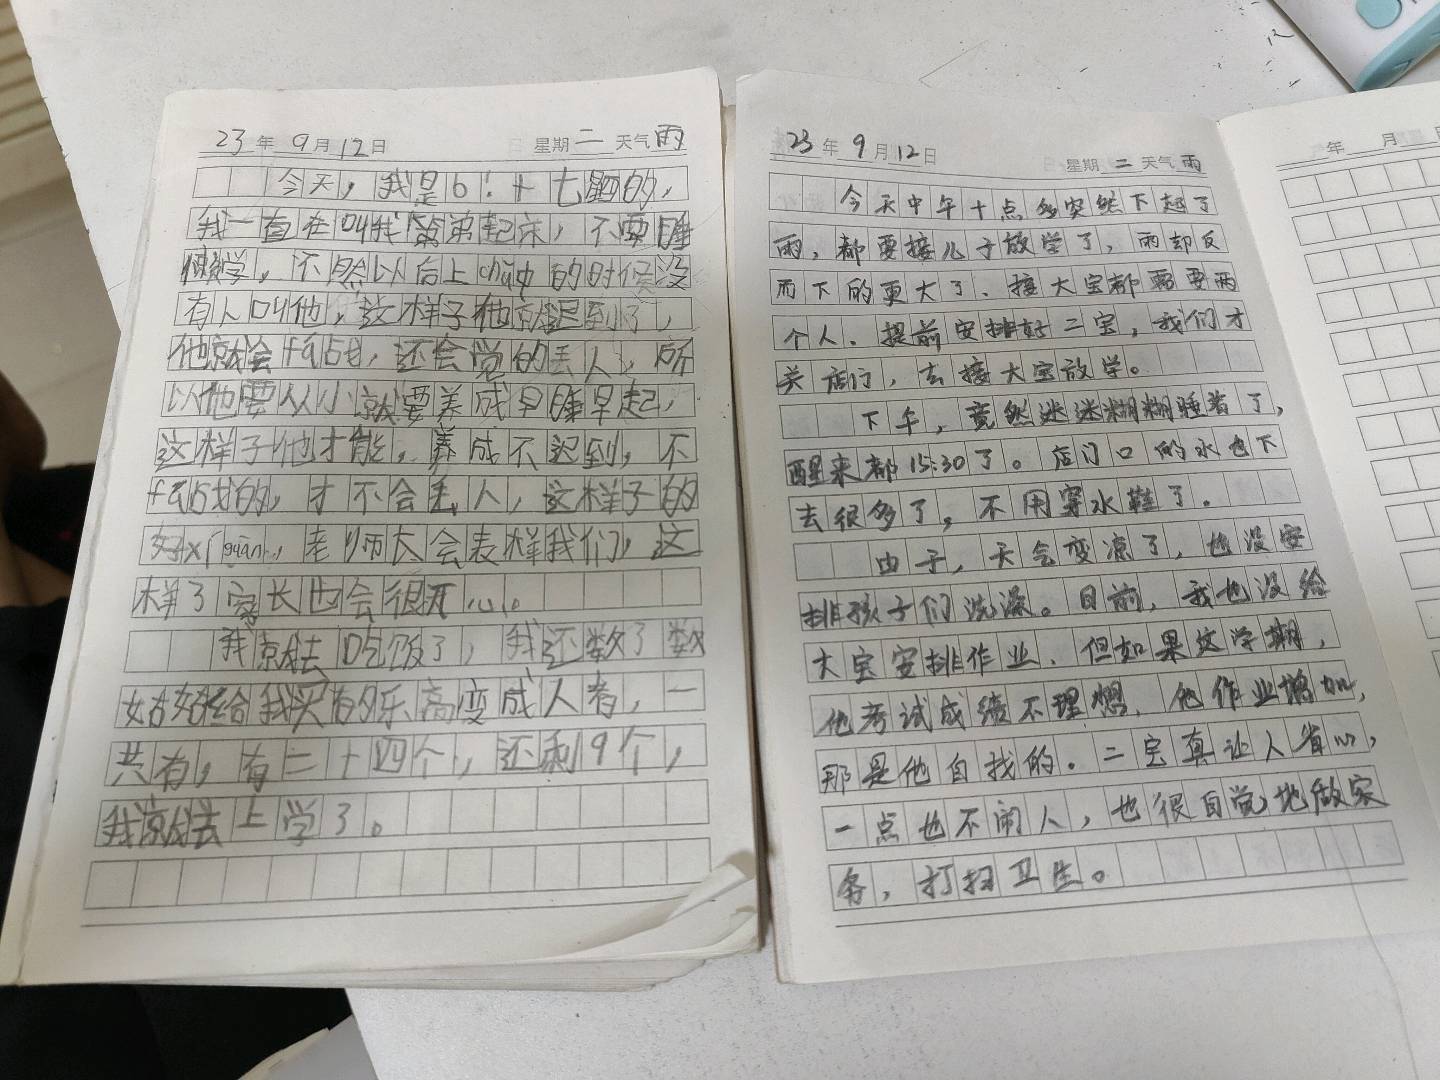 23年 9月 12日 星期二 天气雨
今天，我是6:十七醒的，
我一直在叫我弟弟起床，不要睡
懒学，不然以后上 的时候没
有人叫他，这样子他就迟到了，
他就会fazhan，还会觉的丢人，所
以他要从小就要养成早睡早起，
这样子他才能，养成不迟到，不
的，才不会丢人，这样子的
好xíguàn，老师大会表样我们，这
样了家长也会很开心。
我就去吃饭了，我还数了数
姑姑给我买的乐高变成人者，一
共有，有二十四个，还剩9个，
我就去上学了。
23年 9月 12日 星期二 天气雨
今天中午十点多突然下起了
雨，都要接儿子放学了，雨却反
而下的更大了、接大宝都需要两
个人、提前安排好二宝，我们才
关店门，去接大宝放学。
下午，竟然迷迷糊糊睡着了，
醒来都15:30了。店门口的水也下
去很多了，不用穿水鞋了。
由于，天气变凉了，也没安
排孩子们洗澡。目前，我也没给
大宝安排作业、但如果这学期，
他考试成绩不理想、他作业增加，
那是他自找的。二宝真让人省心，
一点也不闹人，也很自觉地做家
务，打扫卫生。
年 月